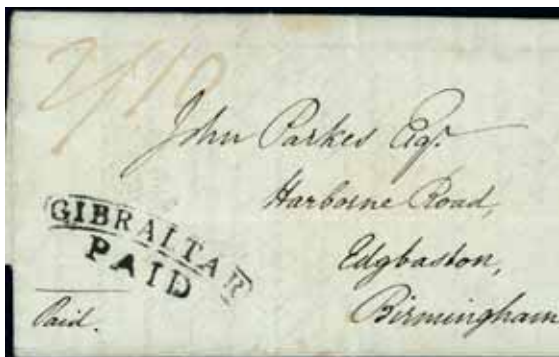 2/10
John Parkes Esqr.
Harborne Road,
Edgbaston,
Birmingham
GIBRALTAR
PAID
Paid.